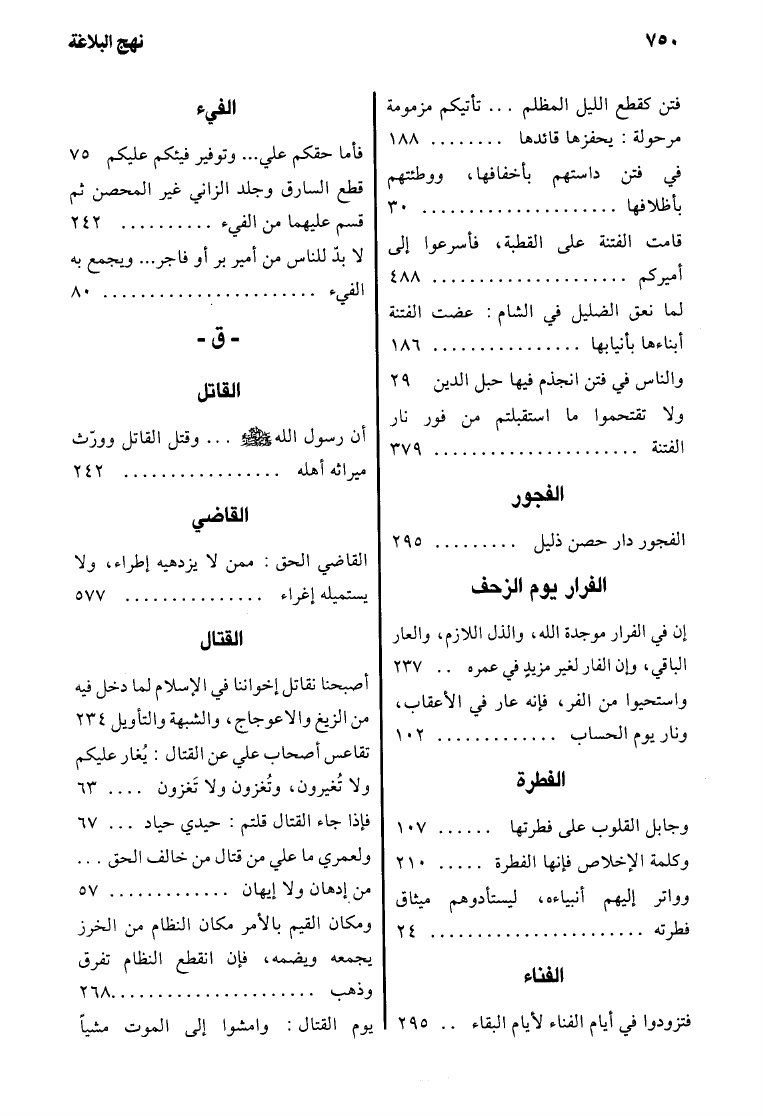 ٧٥٠
نهج البلاغة
فتن كقطع الليل المظلم ... تأتيكم مزمومة
مرحولة : يحفزها قائدها ........ ١٨٨
في فتن داستهم بأخفافها، ووطئتهم
بأظلافها ..................... ٣٠
قامت الفتنة على القطبة، فأسرعوا إلى
أميركم ..................... ٤٨٨
لما نعق الضليل في الشام : عضت الفتنة
أبناءها بأنيابها ................ ١٨٦
والناس في فتن انجذم فيها حبل الدين ٢٩
ولا تقتحموا ما استقبلتم من فور نار
الفتنة ...................... ٣٧٩
الفجور
الفجور دار حصن ذليل ......... ٢٩٥
الفرار يوم الزحف
إن في الفرار موجدة الله، والذل اللازم، والعار
الباقي، وإن الفار لغير مزيدٍ في عمره .. ٢٣٧
واستحيوا من الفر، فإنه عار في الأعقاب،
ونار يوم الحساب ............. ١٠٢
الفطرة
وجابل القلوب على فطرتها ...... ١٠٧
وكلمة الإخلاص فإنها الفطرة ..... ٢١٠
وواتر إليهم أنبياءه، ليستأدوهم ميثاق
فطرته ....................... ٢٤
الفناء
فتزودوا في أيام الفناء لأيام البقاء .. ٢٩٥
الفيء
فأما حقكم علي... وتوفير فيئكم عليكم ٧٥
قطع السارق وجلد الزاني غير المحصن ثم
قسم عليهما من الفيء .......... ٢٤٢
لا بدّ للناس من أمير بر أو فاجر... ويجمع به
الفيء ....................... ٨٠
- ق -
القاتل
أن رسول الله ﷺ ... وقتل القاتل وورّث
ميراثه أهله ................. ٢٤٢
القاضي
القاضي الحق : ممن لا يزدهيه إطراء، ولا
يستميله إغراء ............... ٥٧٧
القتال
أصبحنا نقاتل إخواننا في الإسلام لما دخل فيه
من الزيغ والاعوجاج، والشبهة والتأويل ٢٣٤
تقاعس أصحاب علي عن القتال : يُغار عليكم
ولا تُغيرون، وتُغزون ولا تَغزون .... ٦٣
فإذا جاء القتال قلتم : حيدي حياد ... ٦٧
ولعمري ما علي من قتال من خالف الحق ...
من إدهان ولا إيهان ............. ٥٧
ومكان القيم بالأمر مكان النظام من الخرز
يجمعه ويضمه، فإن انقطع النظام تفرق
وذهب ...................... ٢٦٨
يوم القتال : وامشوا إلى الموت مشياً